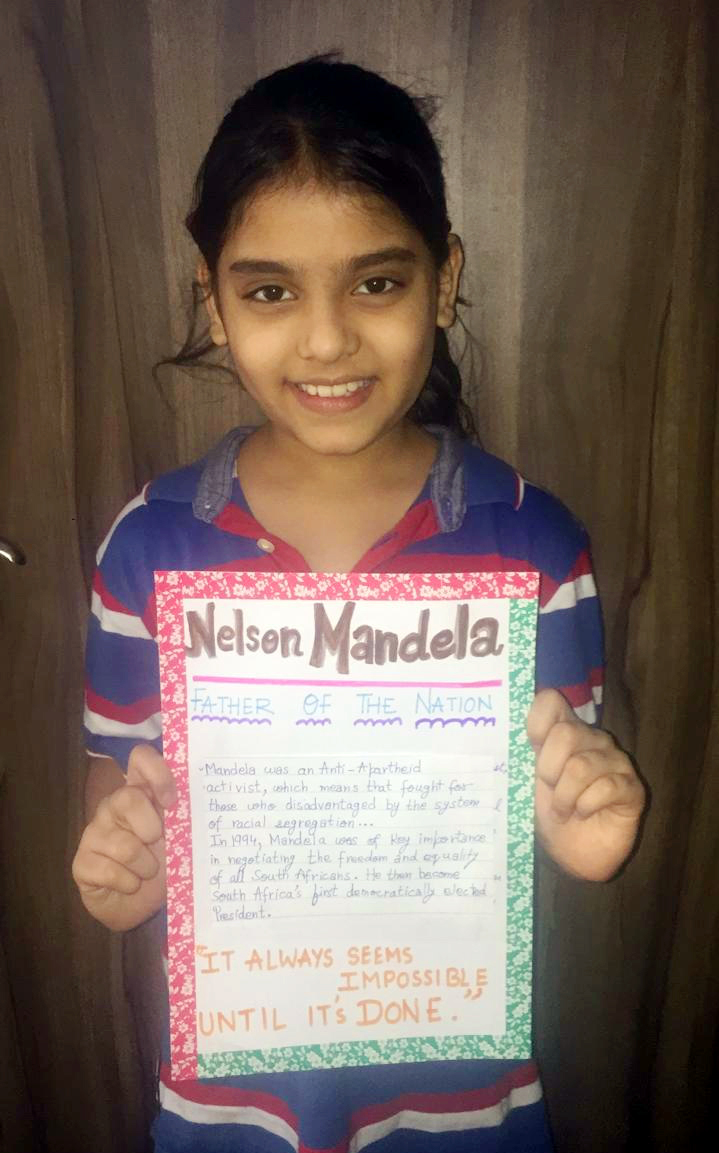 Nelson Mandela
FATHER OF THE NATION
Mandela was an Anti-Apartheid
activist, which means that fought for
those who disadvantaged by the system
of racial segregation...
In 1994, Mandela was of key importance
in negotiating the freedom and equality
of all South Africans. He then become
South Africa's first democratically elected
President.
"IT ALWAYS SEEMS
IMPOSSIBLE
UNTIL IT'S DONE."